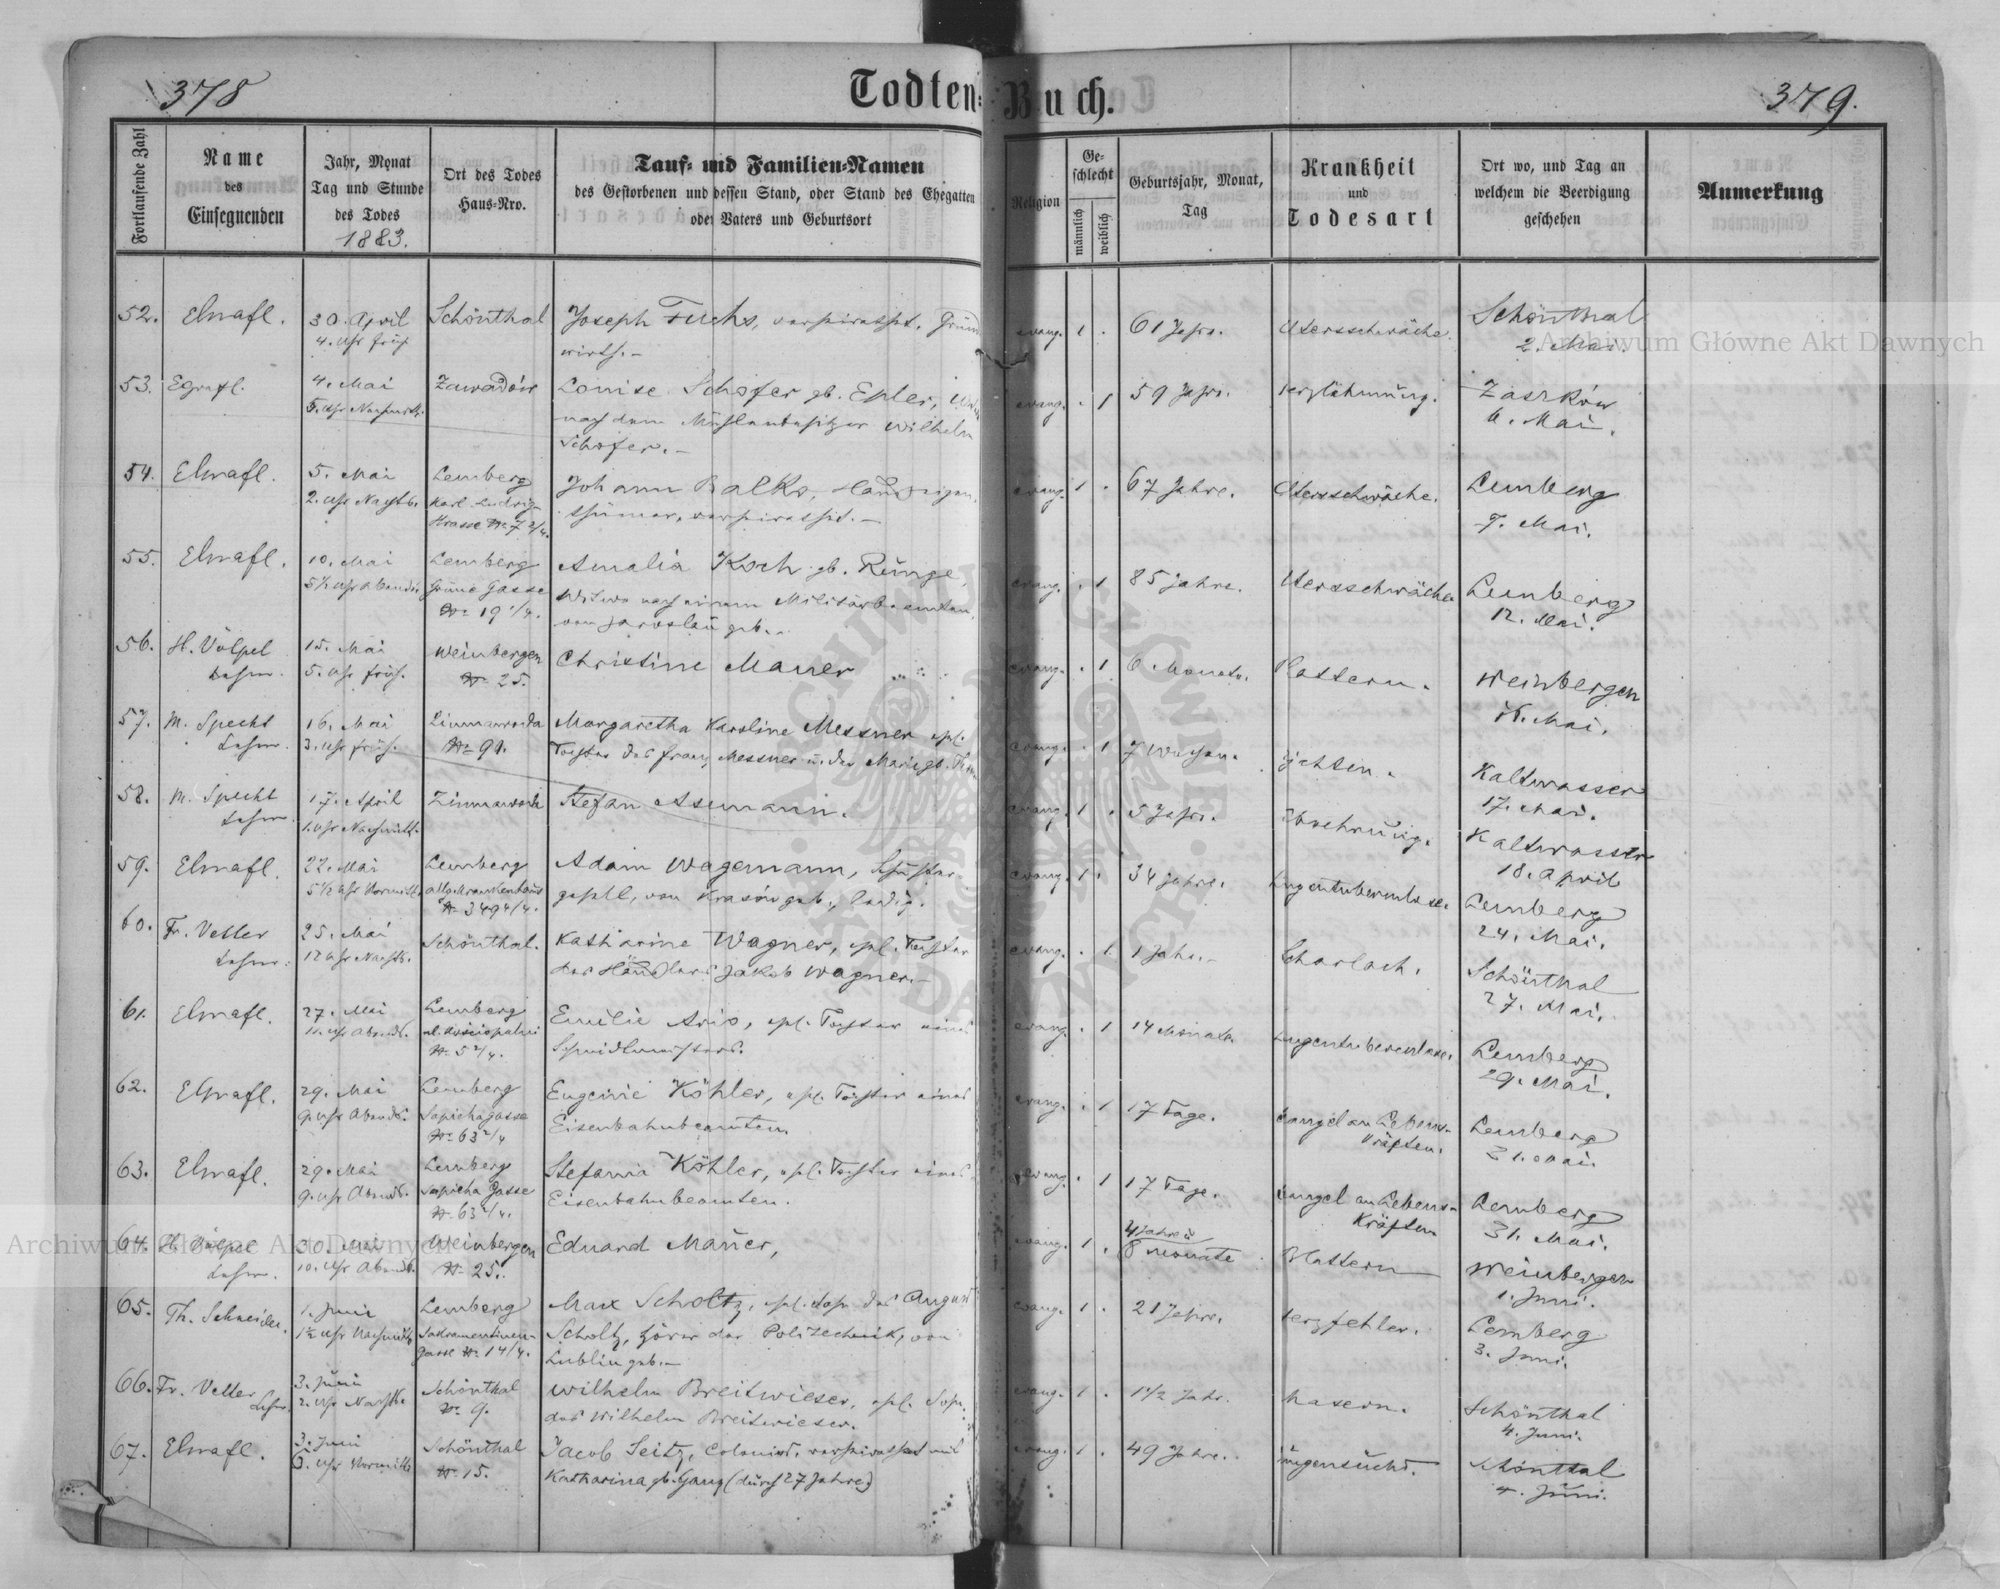 378
Todten-Buch.
379.
Fortlaufende Zahl
Name
des
Einsegnenden
Jahr, Monat
Tag und Stunde
des Todes
1883.
Ort des Todes
Haus-Nro.
Tauf- und Familien-Namen
des Gestorbenen und dessen Stand, oder Stand des Ehegatten
oder Vaters und Geburtsort
Religion
Ge-
schlecht
männlich
weiblich
Geburtsjahr, Monat,
Tag
Krankheit
und
Todesart
Ort wo, und Tag an
welchem die Beerdigung
geschehen
Anmerkung
52.
30. April
4. Uhr früh
Schönthal
Joseph Fuchs,
wirth.-
evang.
1
.
61 Jahre.
Altersschwäche.
Schönthal
2. Mai.
53.
4. Mai
5. Uhr
Zawadów
Louise Schofer gb. Epler,
nach dem Mühlenbesitzer Wilhelm
Schofer.-
evang.
.
1
59 Jahre.
Herzlähmung.
Zaszków
6. Mai.
54.
5. Mai
2. Uhr Nachts.
Lemberg
Karl Ludwig-
Strasse № 7 2/4.
Johann Balko,
evang.
1
.
67 Jahre.
Altersschwäche.
Lemberg
7. Mai.
55.
10. Mai
5½ Uhr Abends
Lemberg
Grüne Gasse
№ 19 1/4.
Amalia Koch gb. Runge,
Witwe nach einem Militärbeamten,
von Jaroslau geb..
evang.
.
1
85 Jahre.
Altersschwäche
Lemberg
12. Mai.
56.
H. Völpel
Lehrer.
15. Mai
5. Uhr früh.
Weinbergen
№ 25.
Christine Mauer
evang.
.
1
6 Monate.
Blattern.
Weinbergen
Mai.
57.
M. Specht
Lehrer.
16. Mai
3. Uhr früh.
Zimnawoda
№ 91.
Margaretha Karoline Messner ehl.
Tochter des Franz Messner u. der Marie gb.
evang.
.
1
7 Wochen.
Kaltwasser
17. Mai.
58.
M. Specht
Lehrer.
17. April
1. Uhr Nachmitt.
Zimnawoda
Stefan Assmann.
evang.
1
.
5 Jahre.
Abzehrung.
Kaltwasser
18. April
59.
22. Mai
5½ Uhr Vormitt.
Lemberg
allg. Krankenhaus
№ 349 4/4.
Adam Wagemann, Schuster-
gesell, von Krasów geb., ledig.
evang.
1
.
34 Jahre.
Lungentuberculose.
Lemberg
24. Mai.
60.
Fr. Vetter
Lehrer.
25. Mai
12 Uhr Nachts.
Schönthal.
Katharine Wagner, ehl. Tochter
des Händlers Jakob Wagner.-
evang.
.
1
1 Jahr.-
Scharlach.
Schönthal
27. Mai.
61.
27. Mai
11. Uhr Abends.
Lemberg
№ 5 2/4.
Emilie Ario, ehl. Tochter eines
Schmidtmeisters.
evang.
.
1
14 Monate
Lungentuberculose.
Lemberg
29. Mai.
62.
29. Mai
9. Uhr Abends.
Lemberg
Sapieha Gasse
№ 63 2/4
Eugenie Köhler, ehl. Tochter eines
Eisenbahnbeamten.
evang.
.
1
17 Tage.
Mangel an Lebens-
kräften.
Lemberg
31. Mai.
63.
29. Mai
9. Uhr Abends.
Lemberg
Sapieha Gasse
№ 63 2/4.
Stefania Köhler, ehl. Tochter eines
Eisenbahnbeamten.
evang.
.
1
17 Tage.
Mangel an Lebens-
kräften
Lemberg
31. Mai.
64.
H. Völpel
Lehrer.
30. Mai
10. Uhr Abends.
Weinbergen
№ 25.
Eduard Mauer,
evang.
1
.
4 Jahre u
8 Monate
Blattern
Weinbergen
1. Juni.
65.
Th. Schneider.
1. Juni
1½ Uhr Nachmitt.
Lemberg
Sakramentinen-
gasse № 14/4.
Max Scholtz, ehl. Sohn des August
Scholtz, Hörer der Politechnik, von
Lublin geb.-
evang.
1
.
21 Jahre.
Herzfehler.
Lemberg
3. Juni.
66.
Fr. Vetter
Lehrer.
3. Juni
2. Uhr Nachts.
Schönthal
№ 9.
Wilhelm Breitwieser, ehl. Sohn
des Wilhelm Breitwieser.
evang.
1
.
1 1/2 Jahr.
Masern.
Schönthal
4. Juni.
67.
3. Juni
Uhr Vormitt.
Schönthal
№ 15.
Jacob Seitz, Colonist, verheirathet mit
Katharina gb. Ganz (durch 27 Jahre)
evang.
1
.
49 Jahre.
Lungensucht.
Schönthal
4. Juni.
Archiwum Główne Akt Dawnych
Archiwum Główne Akt Dawnych
ARCHIWUM GŁÓWNE AKT DAWNYCH